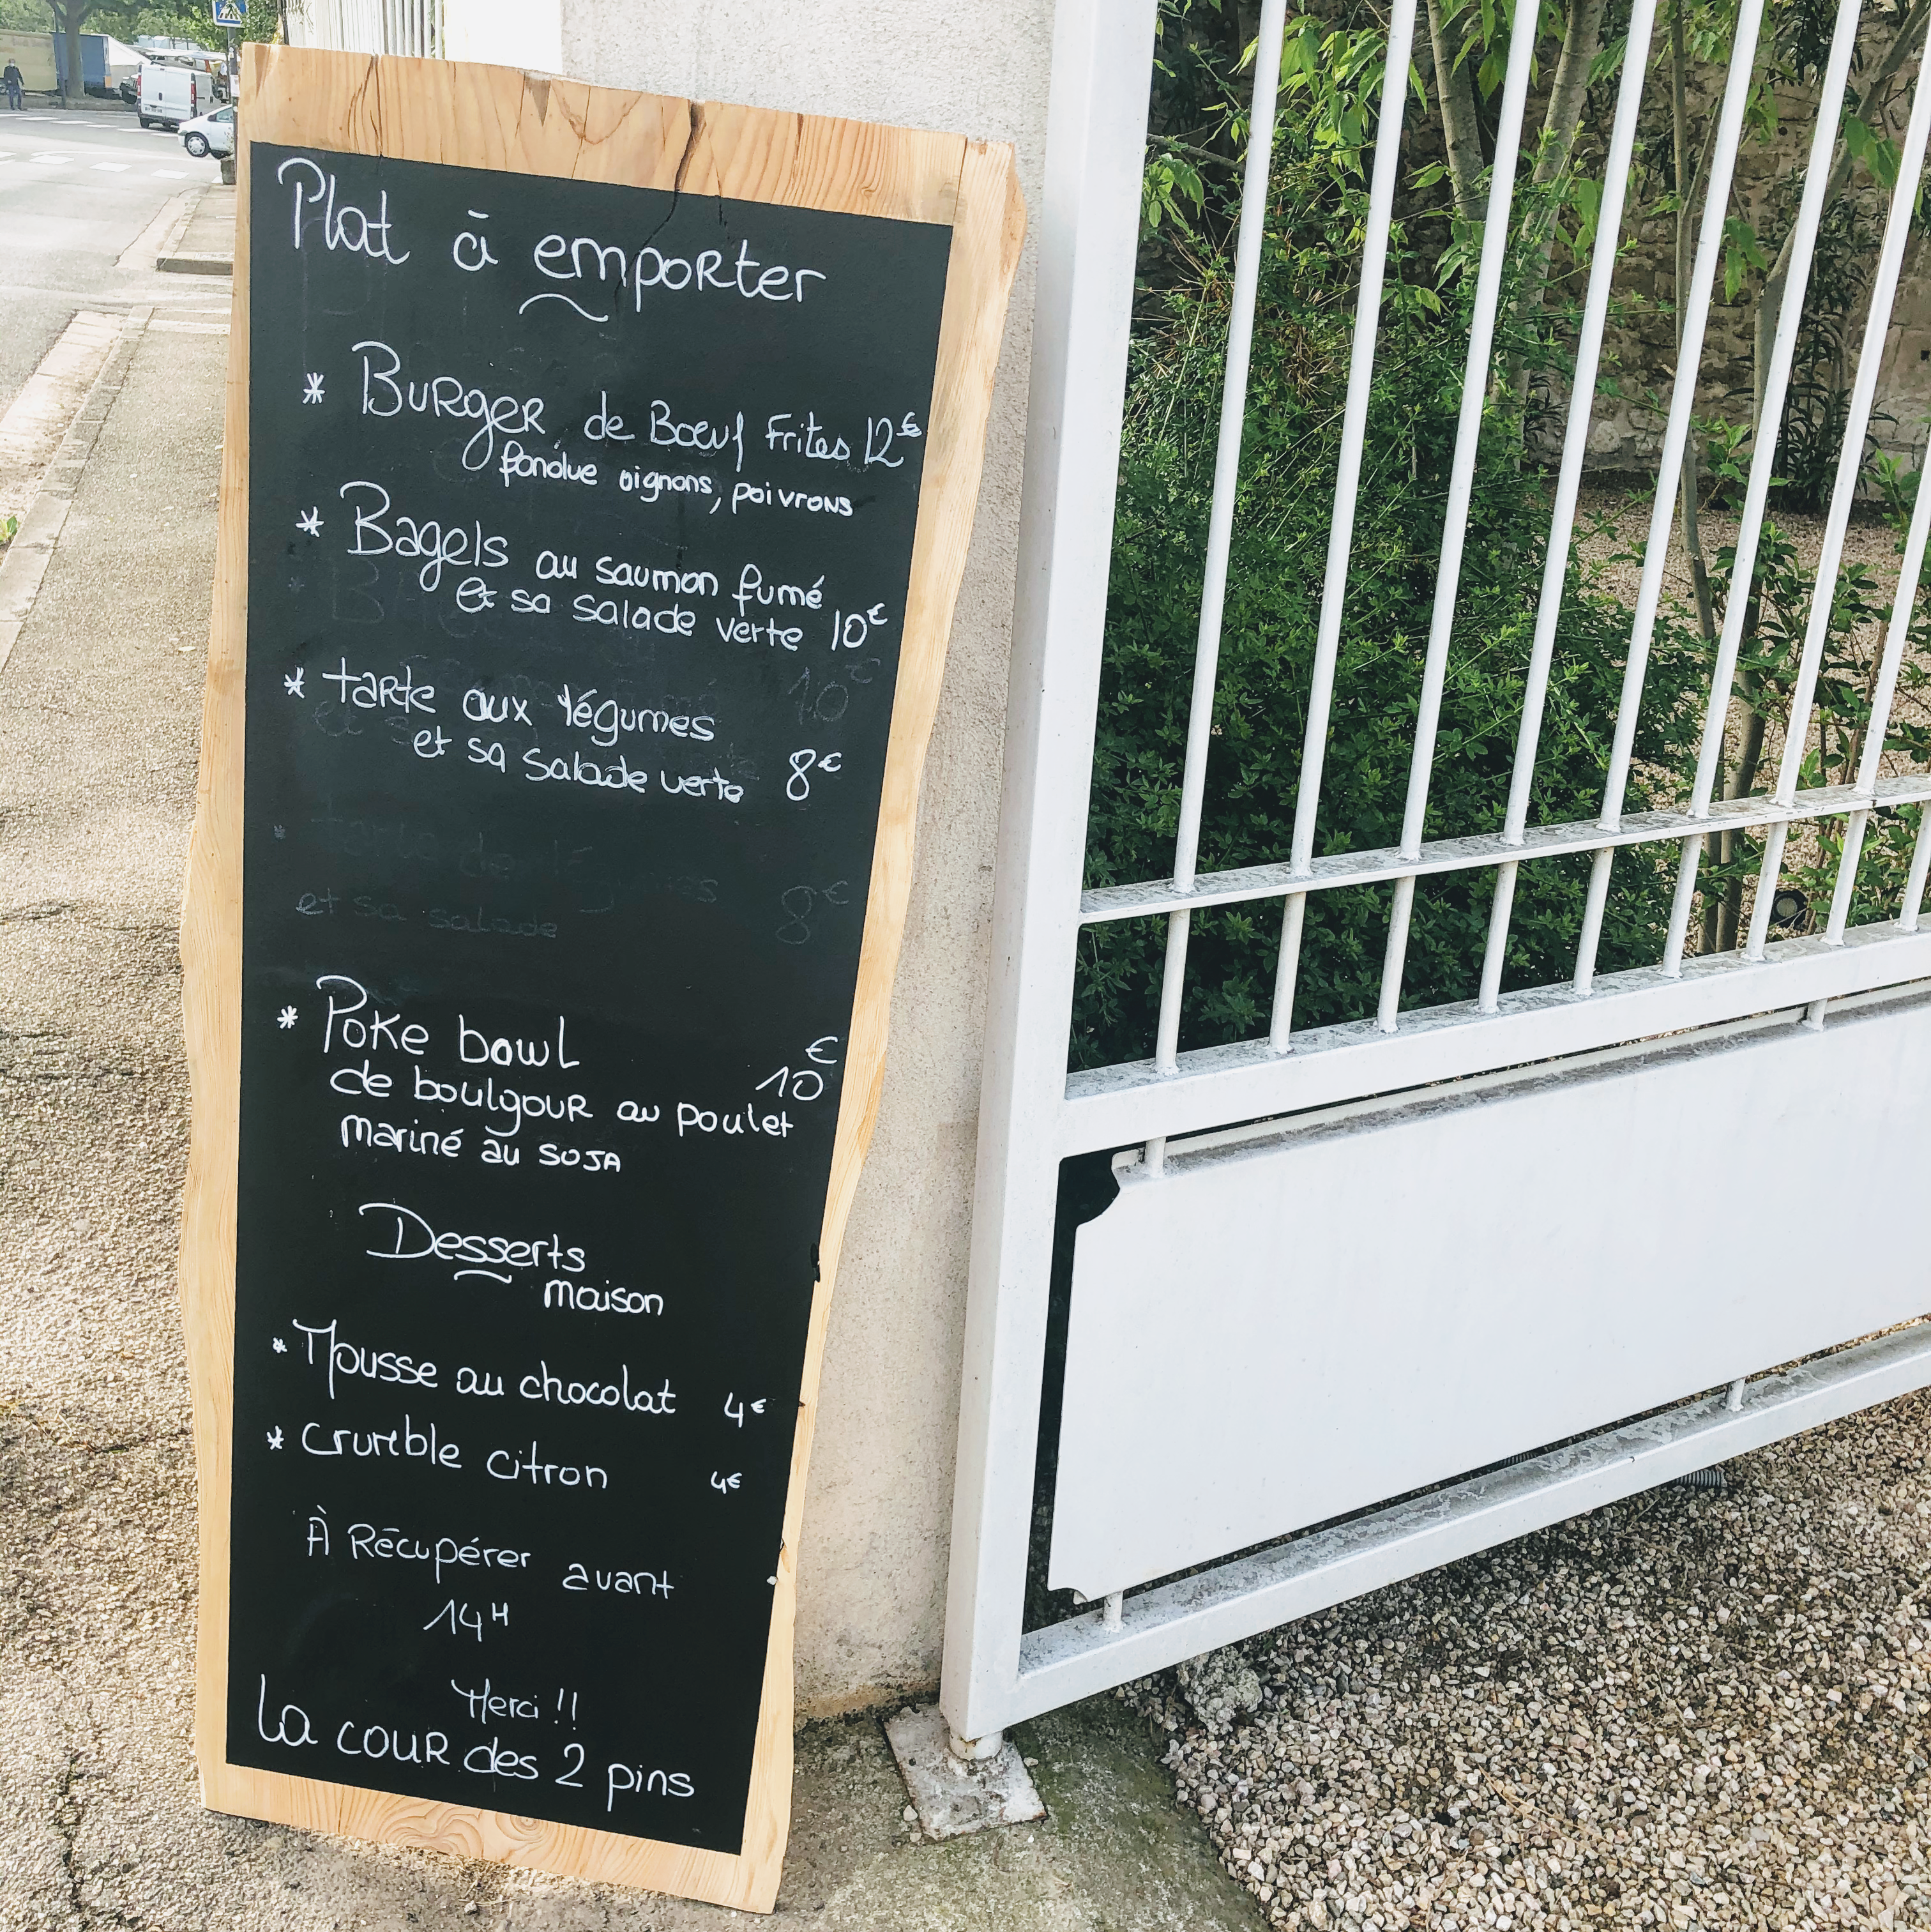 Plat à emporter
* Burger de Bœuf Frites 12€
fondue oignons, poivrons
* Bagels au saumon fumé
et sa salade verte 10€
10€
* tarte aux légumes
et sa salade verte 8€
et sa salade 8€
* Poke bowl €
de boulgour au poulet 10
mariné au soja
Desserts
maison
* Mousse au chocolat 4€
* crumble citron 4€
À Récupérer avant
14H
Merci !!
La cour des 2 pins